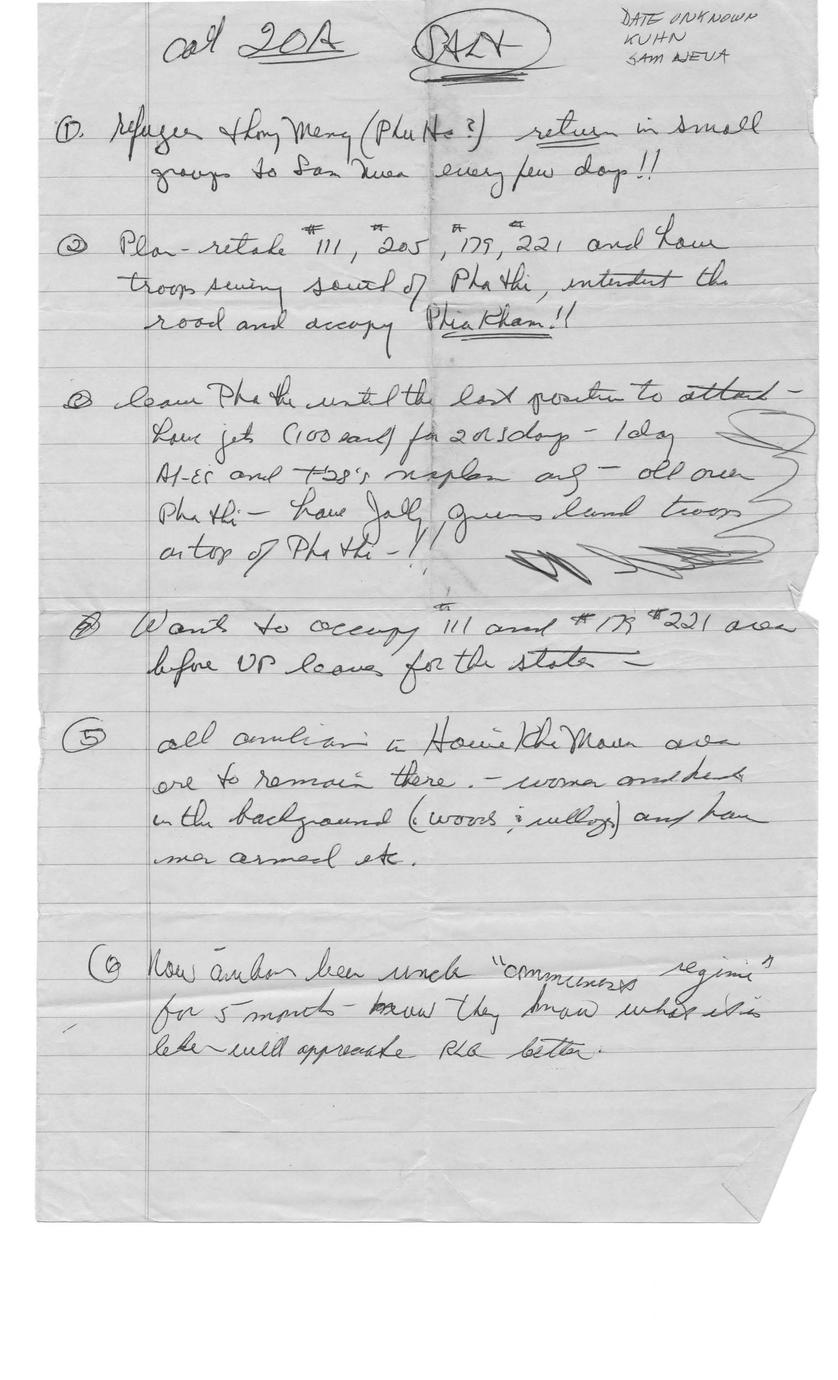 Call 20A SALT
DATE UNKNOWN
KUHN
SAM NEUA
①. refugees Thong Meng (Phu He?) return in small
groups to Sam Nuea every few days!!
② Plan - retake #111, #205, #179, #221 and have
troops swing south of Pha thi, interdict the
road and occupy Phia Kham!!
③ leave Pha thi until the last position to attack -
have jets (100 each) for 2 or 3 days - 1 day
A1-E's and T-28's napalm only - all over
Pha thi - have Jolly greens land troops
on top of Pha thi - !!
④ Wants to occupy #111 and #179 #221 area
before VP leaves for the states -
⑤ all civilians in Houie Khi Moun area
are to remain there. - women and
in the background (woods & ) and have
men armed etc.
⑥ Now been under "communist regime"
for 5 months - now they know what it is
like - will appreciate RLG better.